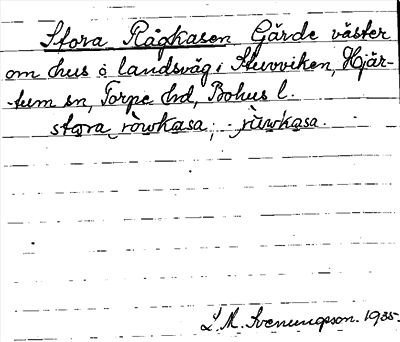 Stora Rågkasen Gärde väster
om hus o landsväg i Stuvviken, Hjär-
-tum sn, Torpe hd, Bohus l.
stora ròwkasa, - rùwkasa.
L.M. Svenungsson. 1935.